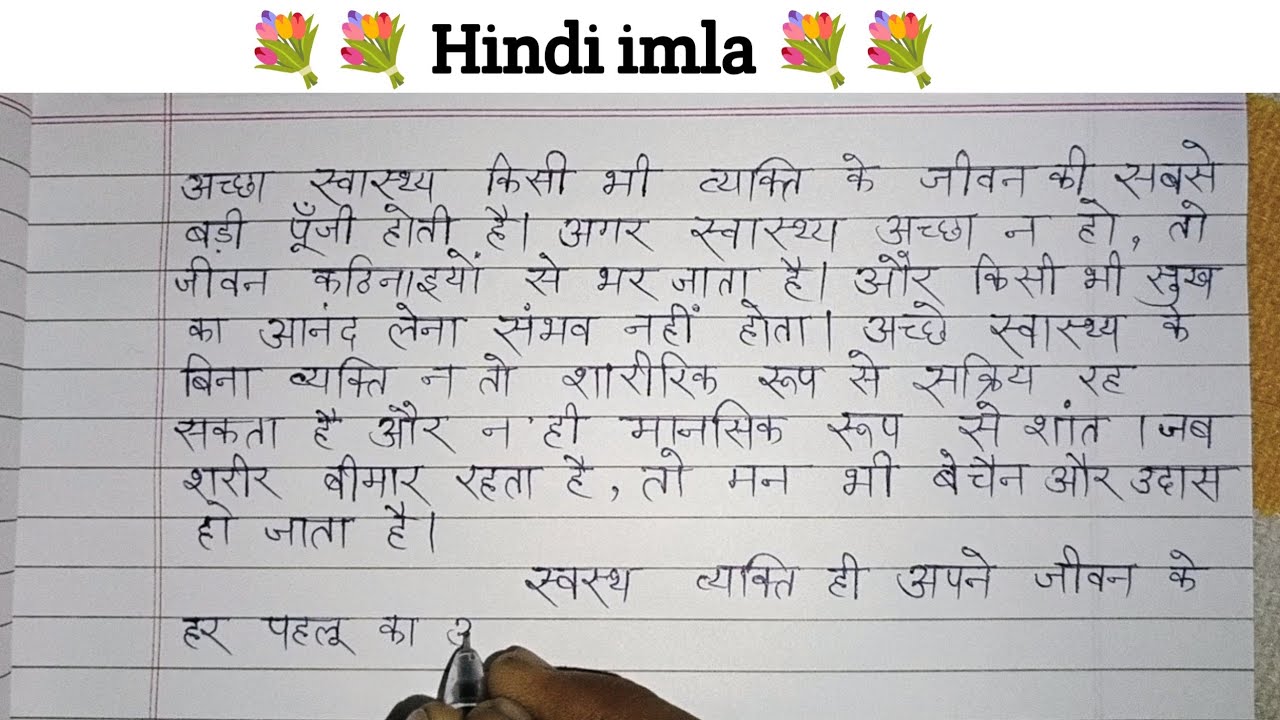 Hindi imla
अच्छा स्वास्थ्य किसी भी व्यक्ति के जीवन की सबसे
बड़ी पूँजी होती है। अगर स्वास्थ्य अच्छा न हो, तो
जीवन कठिनाइयों से भर जाता है। और किसी भी सुख
का आनंद लेना संभव नहीं होता। अच्छे स्वास्थ्य के
बिना व्यक्ति न तो शारीरिक रूप से सक्रिय रह
सकता है और न ही मानसिक रूप से शांत । जब
शरीर बीमार रहता है, तो मन भी बेचैन और उदास
हो जाता है।
स्वस्थ व्यक्ति ही अपने जीवन के
हर पहलू का